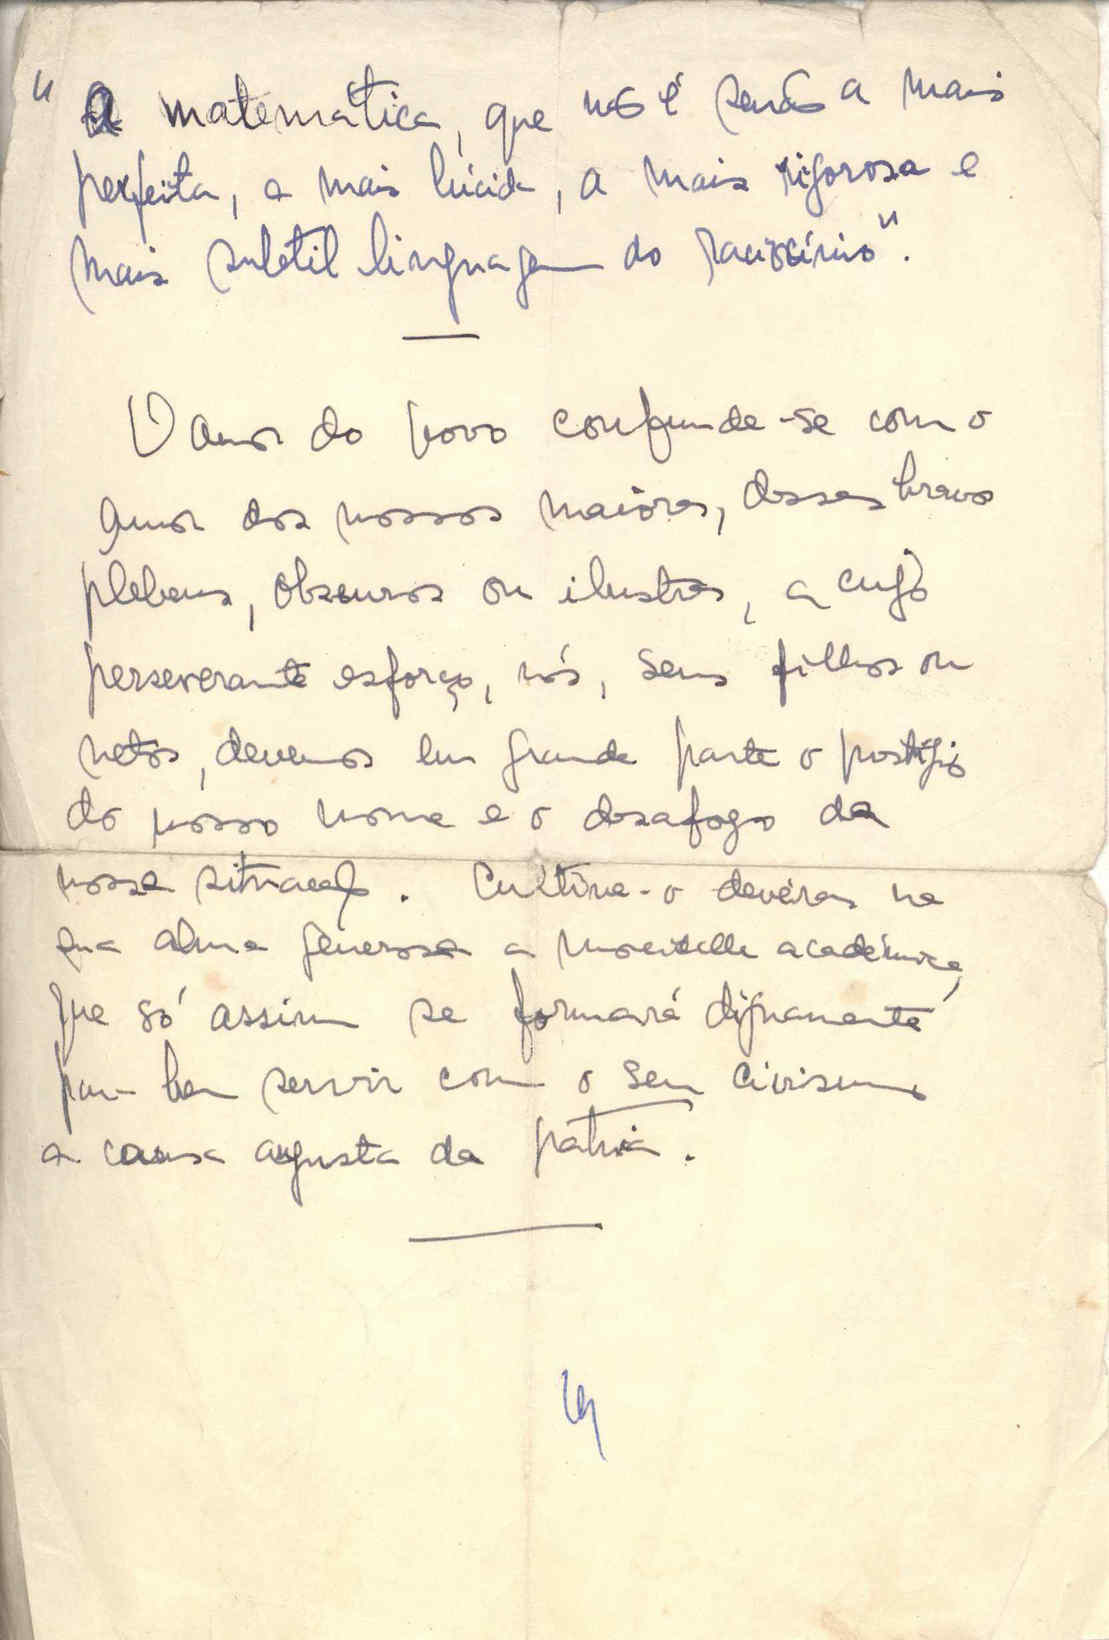 "A matemática, que não é senão a mais
perfeita, a mais lúcida, a mais rigorosa e
mais subtil linguagem do raciocínio".
O amor do povo confunde-se com o
amor dos nossos maiores, desses bravos
plebeus, obscuros ou ilustres, a cujo
perseverante esforço, nós, seus filhos ou
netos, devemos em grande parte o prestígio
do nosso nome e o desafogo da
nossa situação. Cultive-o devéras na
sua alma generosa a mocidade académica,
que só assim se formará dignamente
para bem servir com o seu civismo
a causa augusta da pátria.